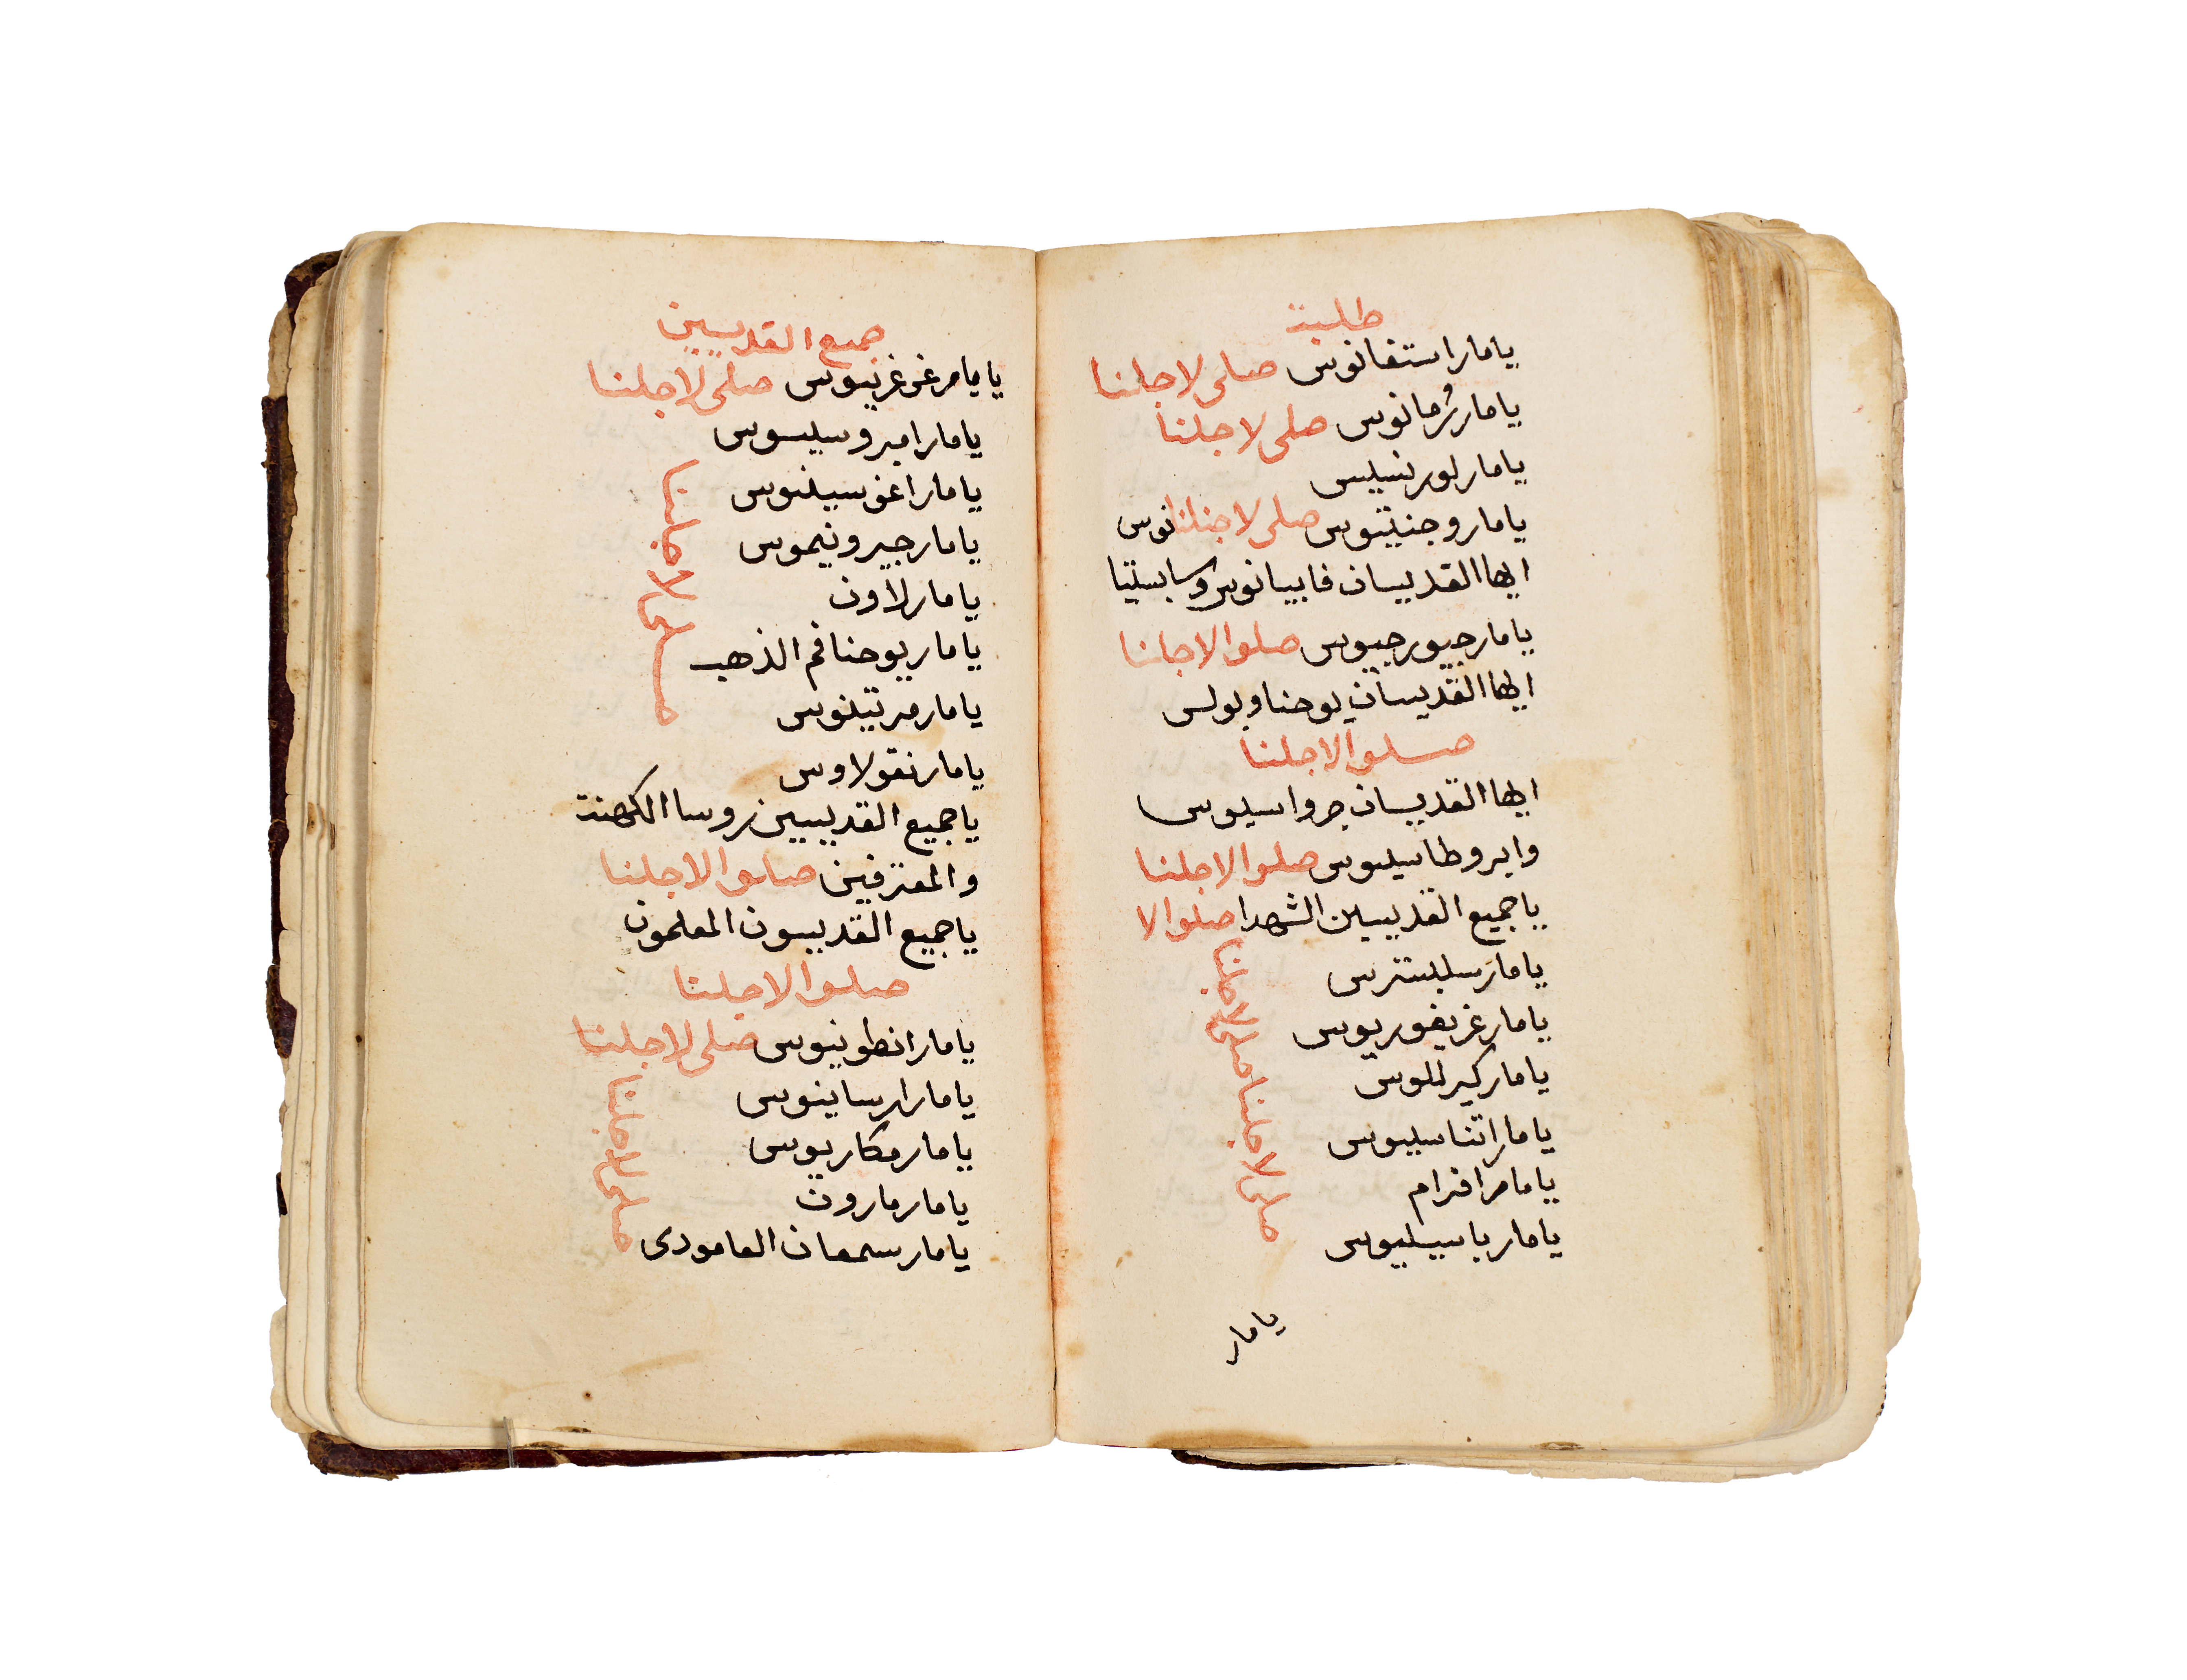 طلبة
يا مار استفانوس صلى لاجلنا
يا مار رومانوس صلى لاجلنا
يا مار لورنسيس
يا مار وجنيتوس صلى لاجلنا نوس
ايها القديسان فابيانوس وسابستيا
يا مار جيورجيوس صلوا لاجلنا
ايها القديسان يوحنا وبولس
صلوا لاجلنا
ايها القديسان جرواسيوس
وابروطاسيوس صلوا لاجلنا
يا جميع القديسين الشهدا صلوا لا
يا مار سلبسترس
يا مار غريغوريوس
يا مار كيرللوس
يا مار اتناسيوس
يا مار افرام
يا مار باسيليوس
صلى لاجلنا صلى لاجلنا
يا مار
جميع القديسين
يا يا مار غرغزيوس صلى لاجلنا
يا مار امبروسيسوس
يا مار اغوسيلنوس
يا مار جيرونيموس
يا مار لاون
يا مار يوحنا فم الذهب
يا مار مرتينوس
يا مار نقولاوس
صلى لاجلنا
يا جميع القديسين روسا الكهنة
والمعترفين صلوا لاجلنا
يا جميع القديسون المعلمون
صلوا لاجلنا
يا مار انطونيوس صلى لاجلنا
يا مار ارساينوس
يا مار مكاريوس
يا مار مارون
يا مار سمعان العامودى
صلى لاجلنا